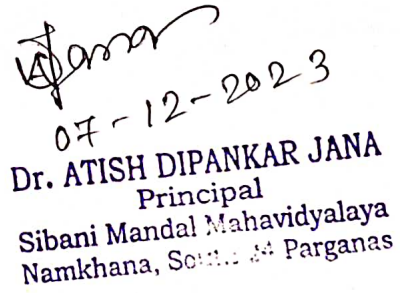 Jana
07-12-2023
Dr. ATISH DIPANKAR JANA
Principal
Sibani Mandal Mahavidyalaya
Namkhana, South 24 Parganas